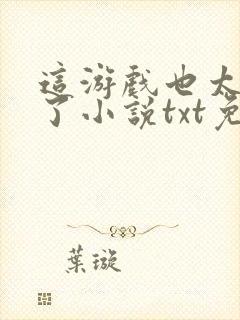 這游戲也太
了小說txt免
葉璇